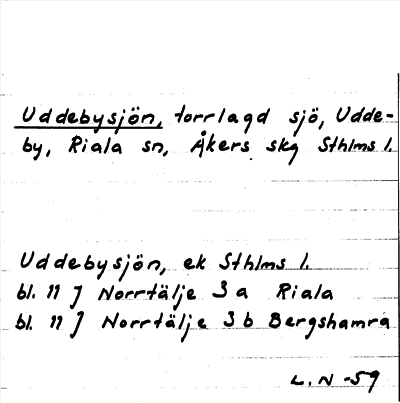 Uddebysjön, torrlagd sjö, Udde-
by, Riala sn, Åkers skg Sthlms l.
Uddebysjön, ek Sthlms l.
bl. 11 J Norrtälje 3a Riala
bl. 11 J Norrtälje 3b Bergshamra
L.N -59